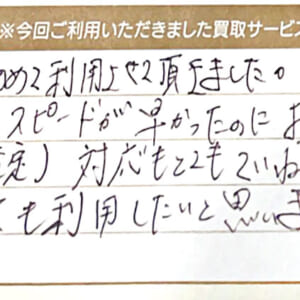 ※今回ご利用いただきました買取サービス
めて利用させて頂きました。
スピードが早かったのに お
定) 対応もとてもていね
も利用したいと思いま